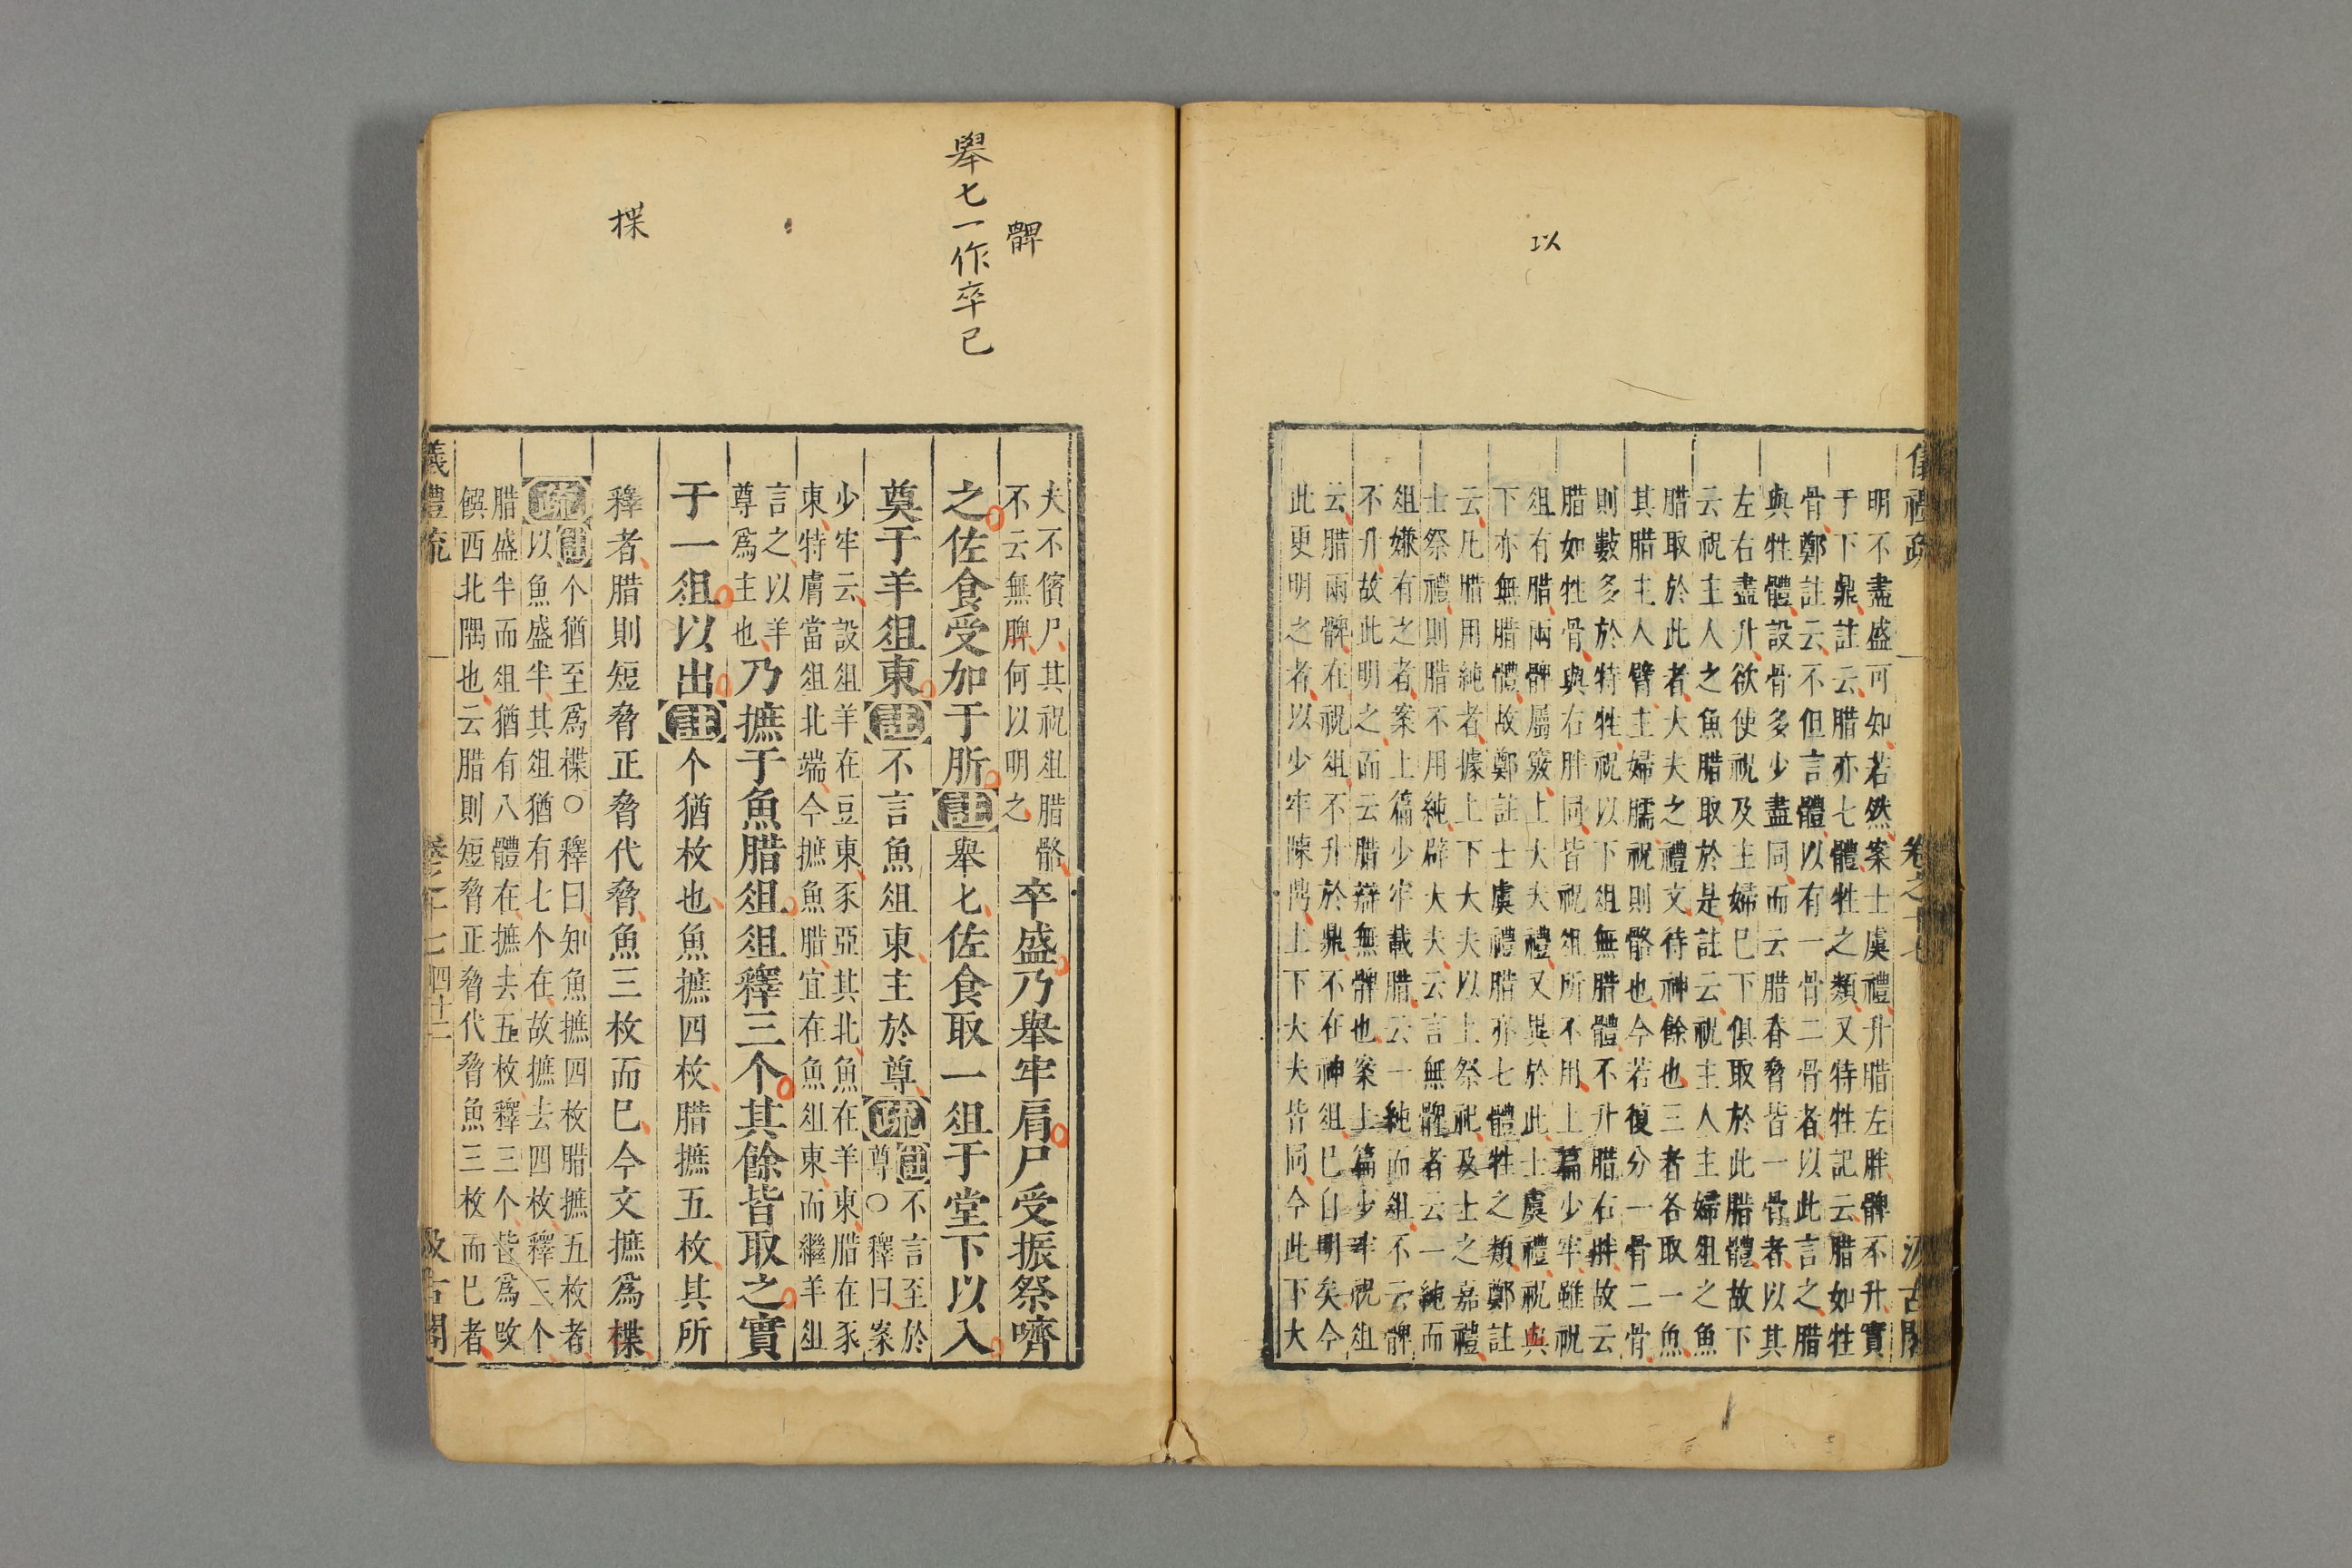 以
儀禮疏 卷之十七 汲古閣
明不盡盛可知若然案士虞禮升腊左胖髀不升實
于下鼎註云腊亦七體牲之類又特牲記云腊如牲
骨鄭註云不但言體以有一骨二骨者以此言之腊
與牲體設骨多少盡同而云腊春脅皆一骨者以其
左右盡升欲使祝及主婦巳下俱取於此腊體故下
云祝主人之魚腊取於是註云祝主人主婦俎之魚
腊取於此者大夫之禮文待神餘也三者各取一魚
其腊主人臂主婦臑祝則骼也今若復分一骨二骨
則數多於特牲祝以下俎無腊體不升腊右胖故云
腊如牲骨與右胖同皆祝俎所不用上篇少牢雖祝
俎有腊兩髀屬竅上大夫禮又異於此士虞禮祝與
下亦無腊體故鄭註士虞禮腊亦七體牲之類鄭註
云凡腊用純者據上下大夫以上祭祀及士之嘉禮
士祭禮則腊不用純辟大夫云言無髀者云一純而
俎嫌有之者案上篇少牢載腊云一純而俎不云髀
不升故此明之而云腊辯無髀也案上篇少牢祝俎
云腊兩髀在祝俎不升於鼎不在神俎巳自明矣今
此更明之者以少牢陳鼎上下大夫皆同今此下大
髀
舉七一作卒已
揲
夫不儐尸其祝俎腊骼
不云無脾何以明之
卒盛乃舉牢肩尸受振祭嚌
之佐食受加于肵 註 舉七佐食取一俎于堂下以入
奠于羊俎東 註 不言魚俎東主於尊 疏 註 不言至於
尊○釋曰案
少牢云設俎羊在豆東豕亞其北魚在羊東腊在豕
東特膚當俎北端今摭魚腊宜在魚俎東而繼羊俎
言之以羊
尊爲主也
乃摭于魚腊俎俎釋三个其餘皆取之實
于一俎以出 註 个猶枚也魚摭四枚腊摭五枚其所
釋者腊則短脅正脅代脅魚三枚而巳今文摭爲楪
疏 註 个猶至爲楪○釋曰知魚摭四枚腊摭五枚者
以魚盛半其俎猶有七个在故摭去四枚釋三个
腊盛半而俎猶有八體在摭去五枚釋三个皆爲改
饌西北隅也云腊則短脅正脅代脅魚三枚而巳者
儀禮疏 卷之十七 四十二 汲古閣